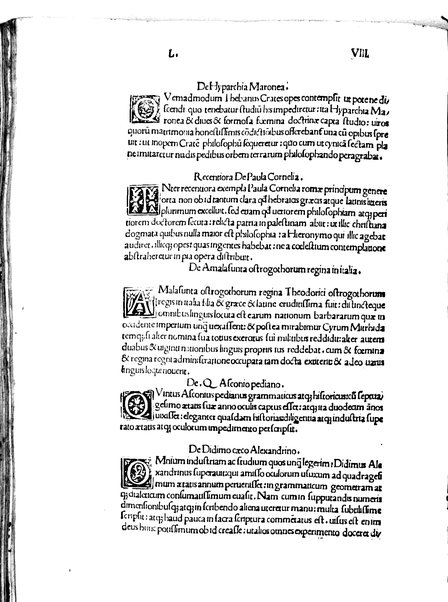 L. VIII.
De Hyparchia Maronea.
QVemadmodum Thebanus Crates opes contempsit ut pote ne di
scendi quo tenebatur studiũ his impediretur: ita Hyparchia Ma
ronea & diues & formosa fœmina doctrinæ capta studio: uiros
quorũ matrimonia honestissimis cõditiõibus offerebãf una cũ opibus spre
uit: ut inopem Cratẽ philosophũ sequeretur: quo cum ut cynicã sectam pla
ne imitaretur nudis pedibus orbem terrarum philosophando peragrabat.
Recentiora De Paula Cornelia.
INter recentiora exempla Paula Cornelia romæ principum genere
orta non ob id tantum clara qđ hebraicas græcas atque latinis litteris
plurimum excelluit. sed etiam qđ uerorem philosophiam atqȝ peri
tiorem doctorem secuta: relicta patria in palestinam abiit: ut illic christiana
dogmata quibus nulla maior est philosophia: a Hieronymo qui illic agebat
audiret. illicqȝ opes quas ingentes habebat: ne a cœlestium contemplatione
abstraheretur in pia opera distribuit.
De Amalasunta ostrogothorum regina in italia.
AMalasunta ostrogothorum regina Theodorici ostrogothorum
regis in italia filia & græce & latine eruditissima fuit: diisticteque
omnibus linguis locuta est earum nationum barbararum quæ in
occidente imperium unq̃ uexassent: & postea mirabimur Cyrum Mitrhida
temqȝ: si alter nomina sua totius exercitus sui militibus reddidit: alter autem
duabus & uiginti nationibus linguis propriis ius reddebat. cum & fœmina
& regina regni administratione occupata tam docta extiterit & a deo uariis
linguis loqui nouerit.
De. Q. Asconio pediano.
QVintus Asconius pedianus grammaticus atqȝ historicus: cũ septua
gesimo ætatis suæ anno oculis captus esset: atqȝ ita duodecim ãnos
uixisset: eleganter quasdam historias diligentia atqȝ industria supe
rato ætatis atqȝ oculorum impedimento perscripsit.
De Didimo cæco Alexandrino.
OMnium industriam ac studium quos unq̃ legerim: Didimus Ale
xandrinus superauit: qui amissio oculorum usu cum ad quadragesi
mum ætatis annum peruenisset: in grammaticum geometram at
qȝ dialecticum consumatissimum euasit. Nam cum in supputandis numeris
dimensionibusqȝ in scribendo aliena uteretur manu: multa subtilissime
scripsit: atqȝ haud pauca in sacra scriptura commentatus est. uisus est enim
deus huic potissimum ob id creasse: ut alios omnes experimento doceret diu